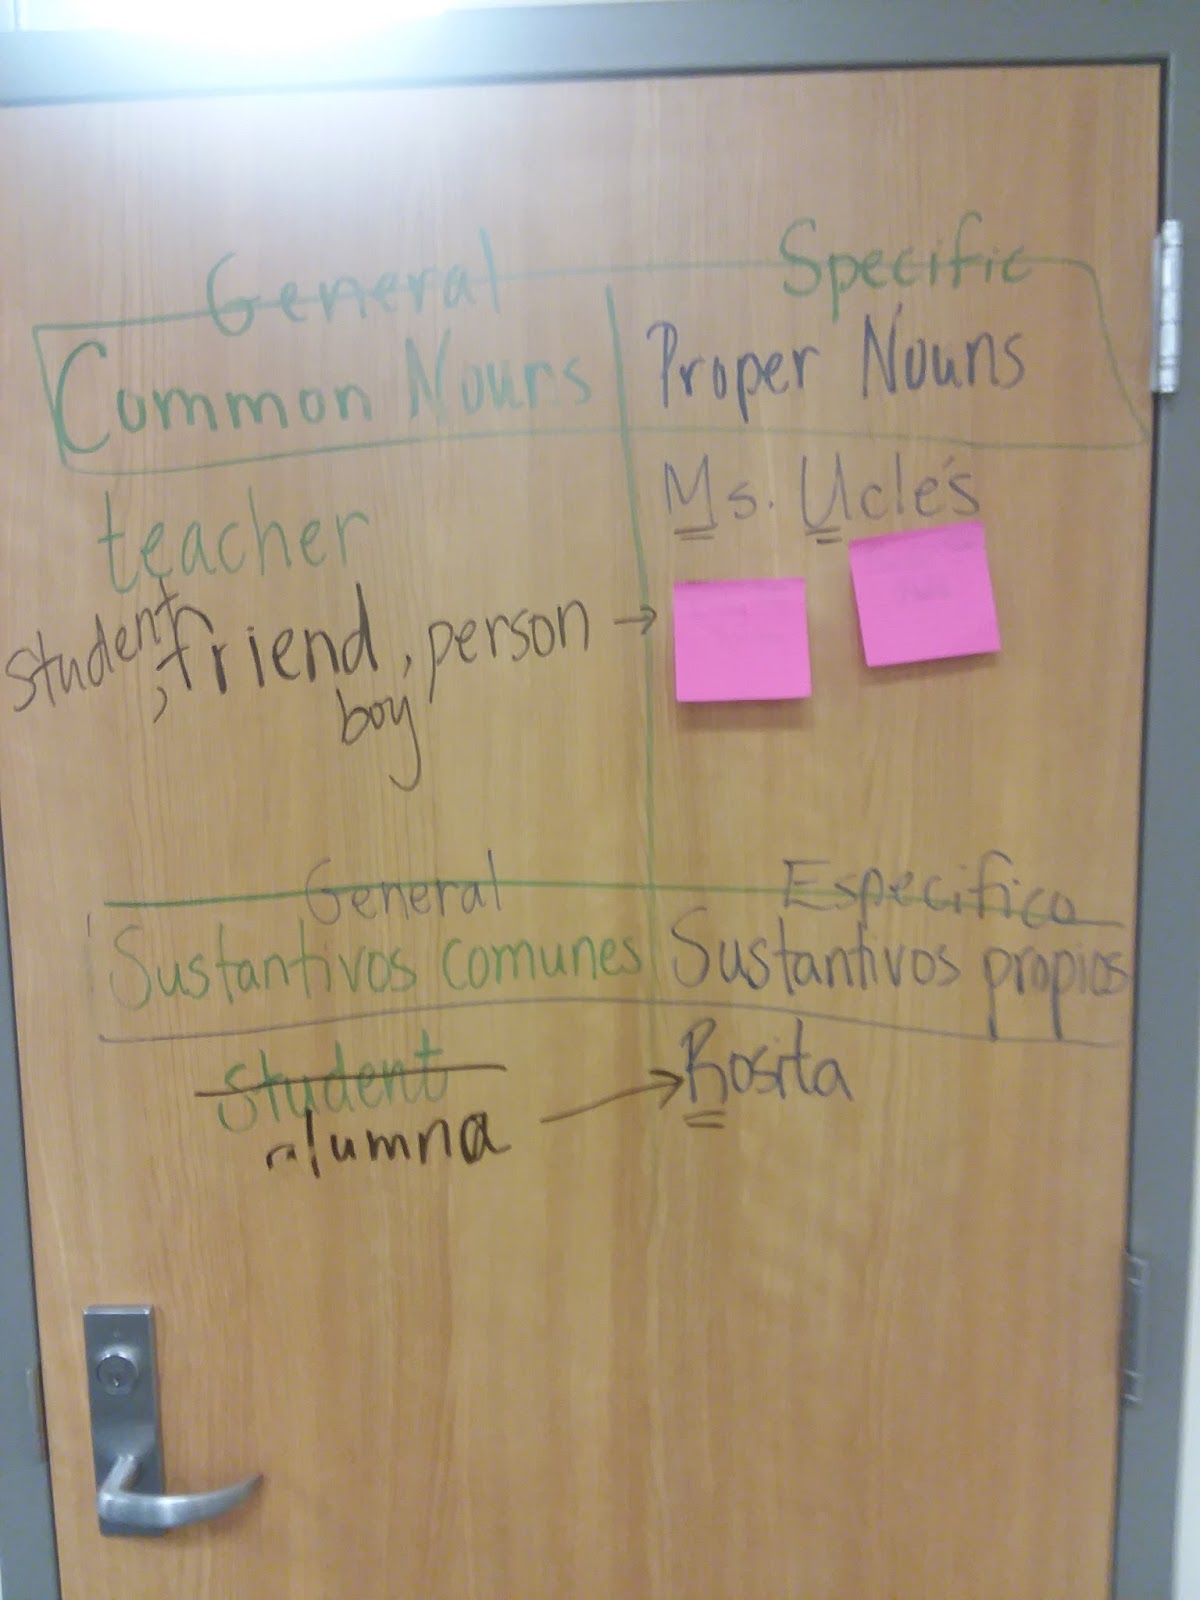 General Specific
Common Nouns Proper Nouns
teacher Ms. Ucles
student, friend, person →
boy
General Especifico
Sustantivos comunes Sustantivos propios
student Rosita
alumna →